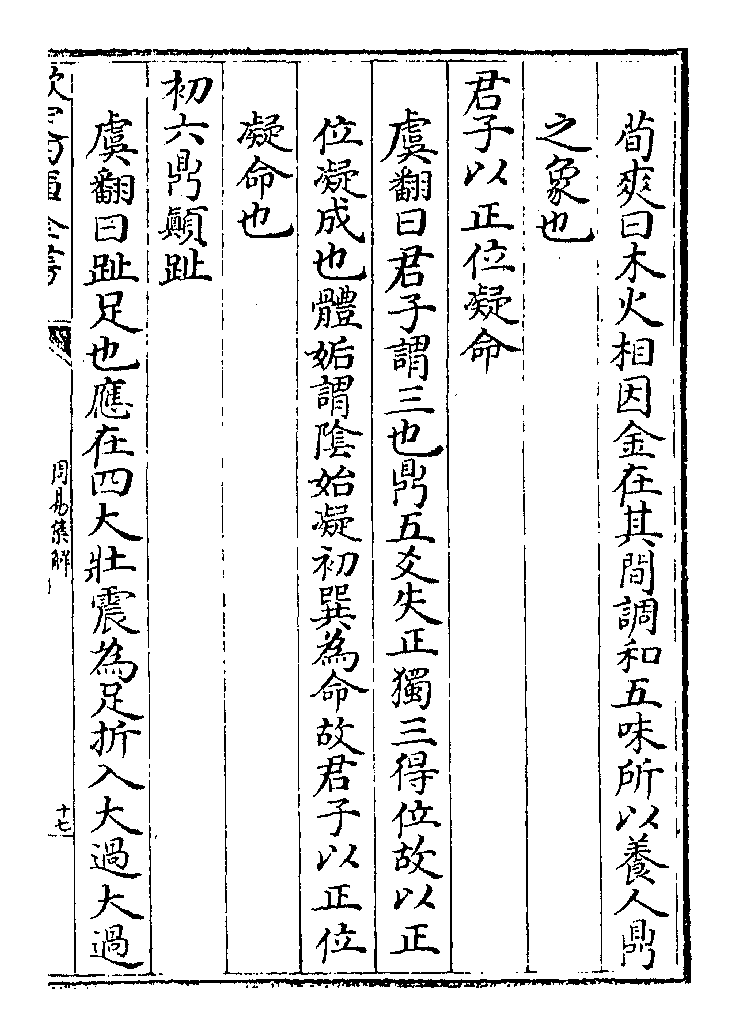 荀爽曰木火相因金在其間調和五味所以養人鼎
之象也
君子以正位凝命
虞翻曰君子謂三也鼎五爻失正獨三得位故以正
位凝成也體姤謂陰始凝初巽為命故君子以正位
凝命也
初六鼎顛趾
虞翻曰趾足也應在四大壯震為足折入大過大過
周易集解
十七